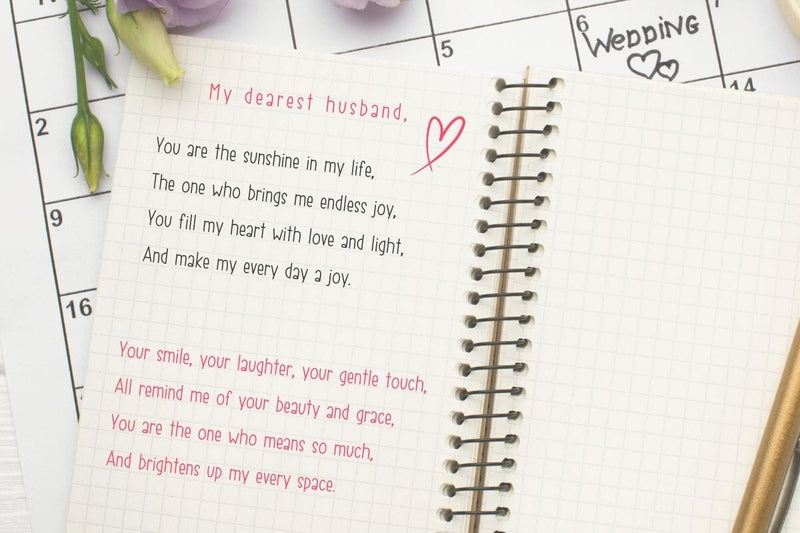 6
WEDDING
5
14
2
9
16
My dearest husband,
You are the sunshine in my life,
The one who brings me endless joy,
You fill my heart with love and light,
And make my every day a joy.
Your smile, your laughter, your gentle touch,
All remind me of your beauty and grace,
You are the one who means so much,
And brightens up my every space.